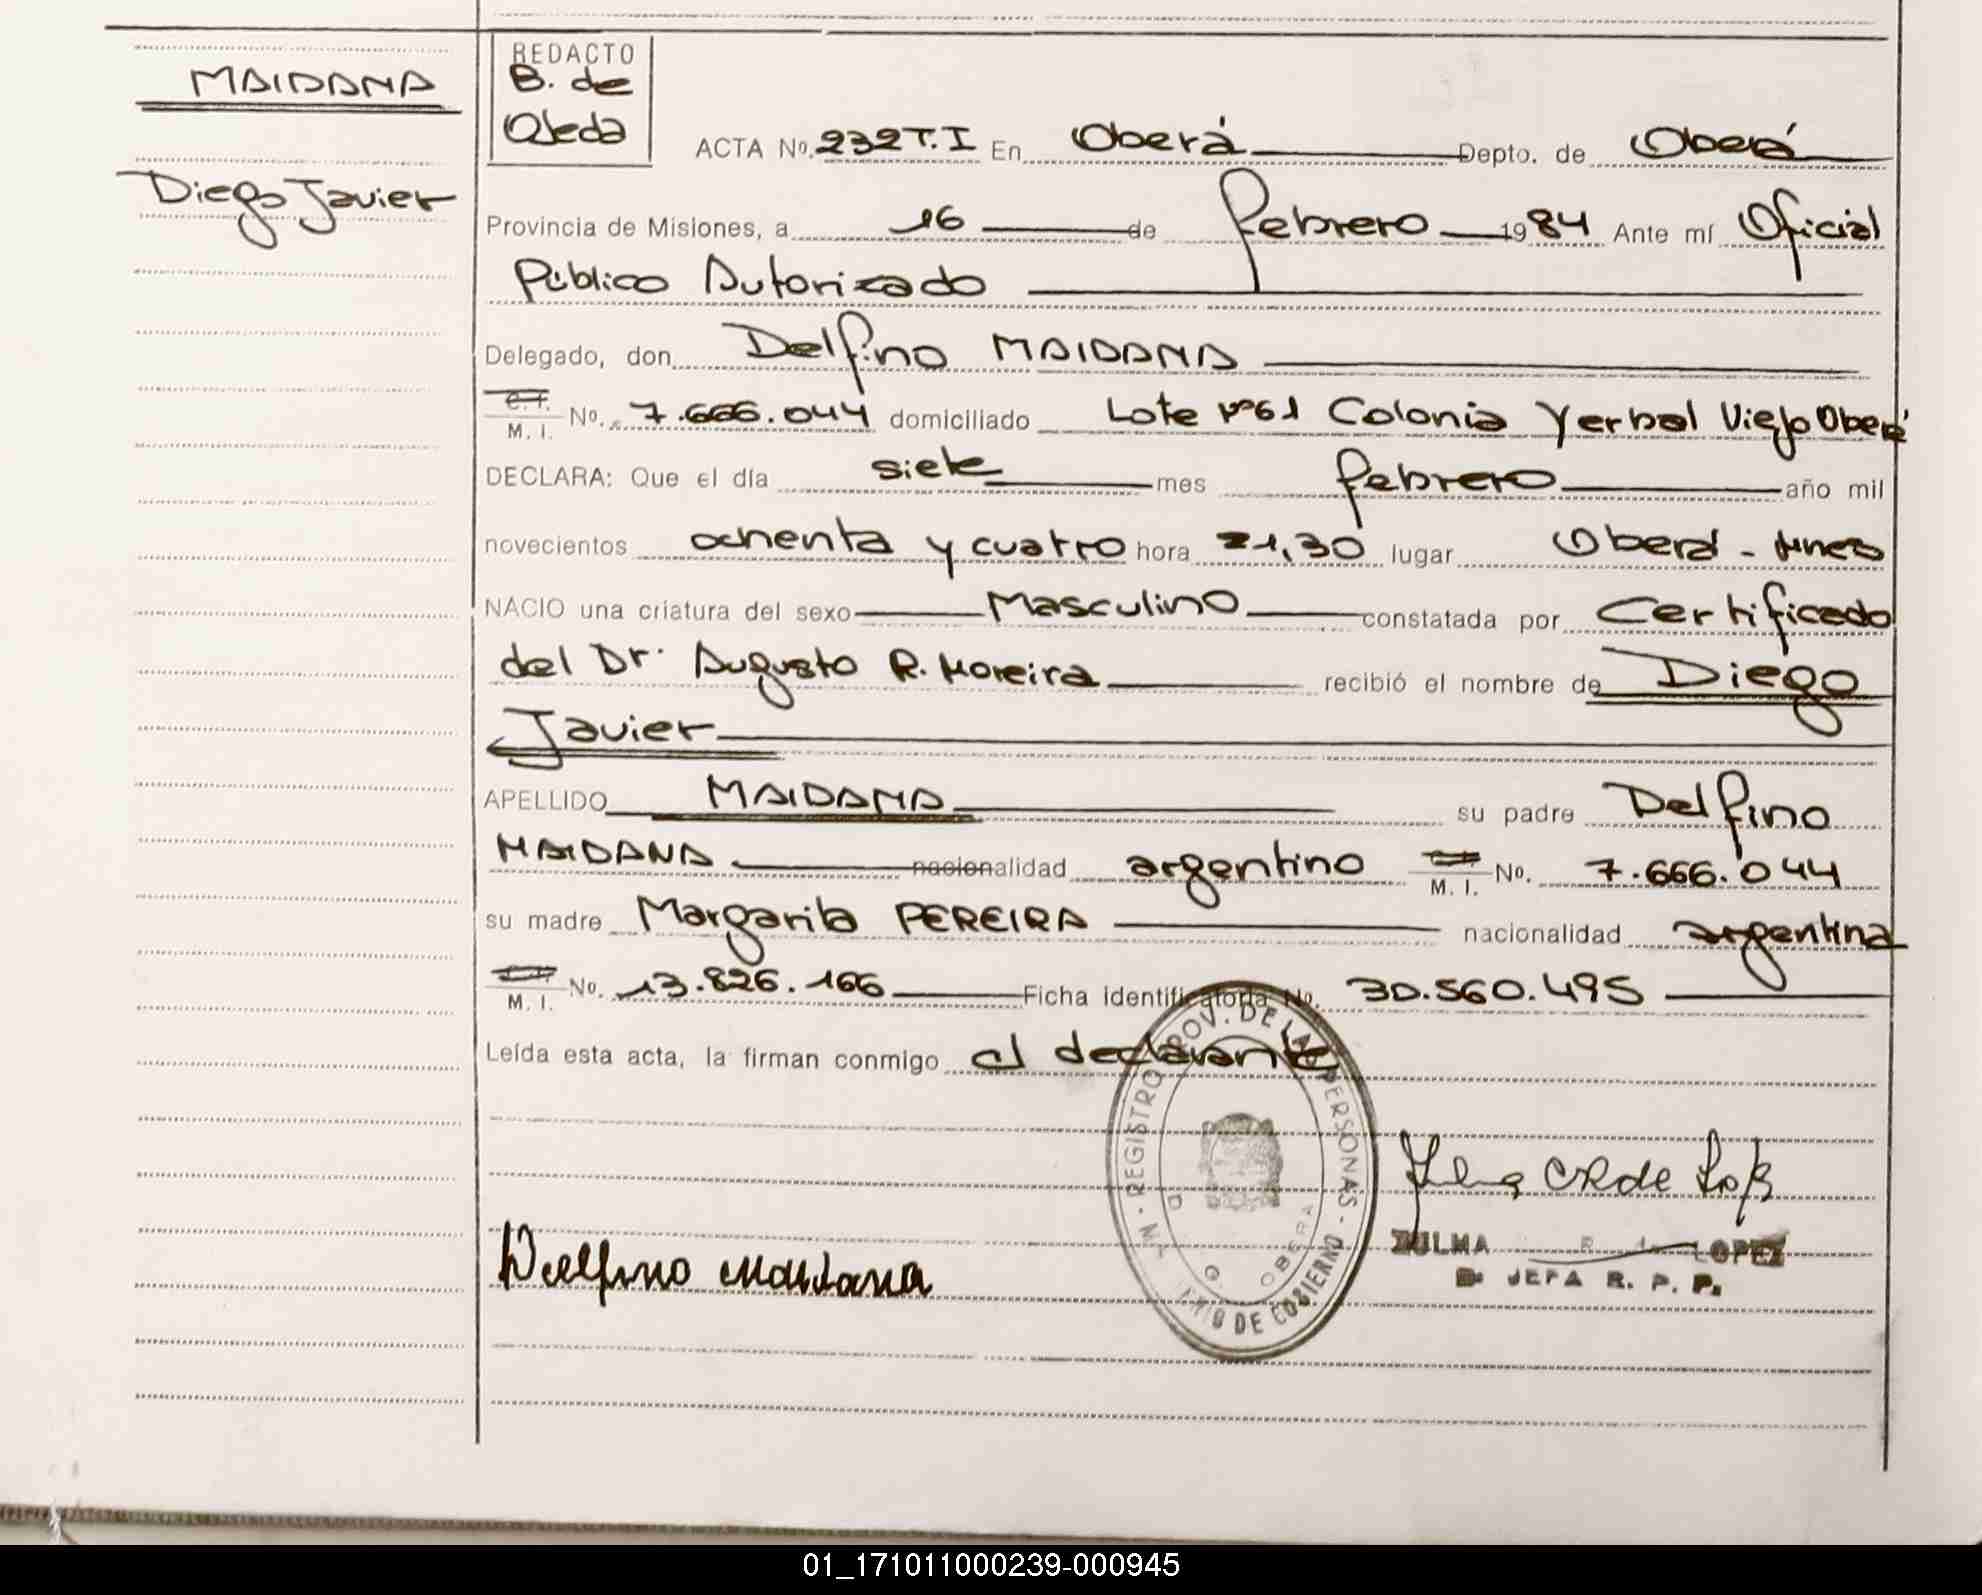 MAIDANA
Diego Javier
REDACTO
B. de
Ojeda
ACTA Nº. 232 T.I En Oberá Depto. de Oberá
Provincia de Misiones, a 16 de febrero 1984 Ante mí Oficial
Público Autorizado
Delegado, don Delfino MAIDANA
C.I.
M. I. Nº. 7.666.044 domiciliado Lote Nº61 Colonia Yerbal Viejo Oberá
DECLARA: Que el día siete mes febrero año mil
novecientos ochenta y cuatro hora 21,30 lugar Oberá - Mnes
NACIO una criatura del sexo Masculino constatada por Certificado
del Dr. Augusto R. Moreira recibió el nombre de Diego
Javier
APELLIDO MAIDANA su padre Delfino
MAIDANA nacionalidad argentino M. I. Nº. 7.666.044
su madre Margarita PEREIRA nacionalidad argentina
M. I. Nº. 13.826.166 Ficha identificatoria Nº. 30.560.495
Leída esta acta, la firman conmigo el declarante
REGISTRO PROV. DE LAS PERSONAS - DE GOBIERNO
OBERA
Delfino Maidana
ZULMA LOPEZ
JEFA R. P. P.
01_171011000239-000945